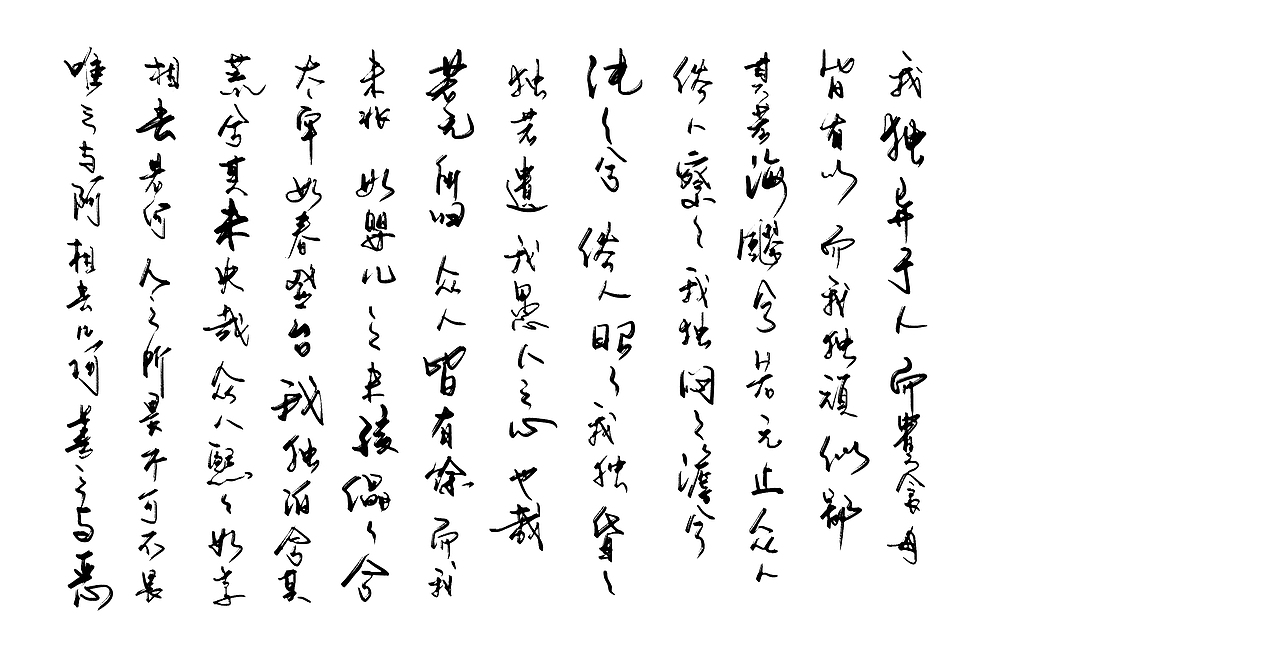 唯之与阿相去几何善之与恶
相去若何人之所畏不可不畏
荒兮其未央哉众人熙々如享
太牢如春登台我独泊兮其
未兆如婴儿之未孩儡々兮
若无所归众人皆有馀而我
独若遗我愚人之心也哉
沌々兮俗人昭々我独昏々
俗人察々我独闷々澹兮
其若海飂兮若无止众人
皆有以而我独顽似鄙
我独异于人而贵食母